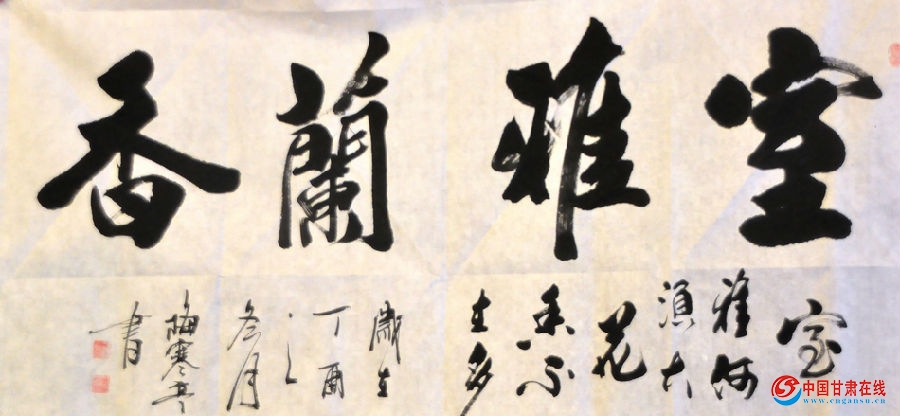 室雅蘭香
室
雅何
須大
花
香不
在多
歲在
丁酉
之
冬月
梅寒
書
中国甘肃在线
www.cngansu.cn